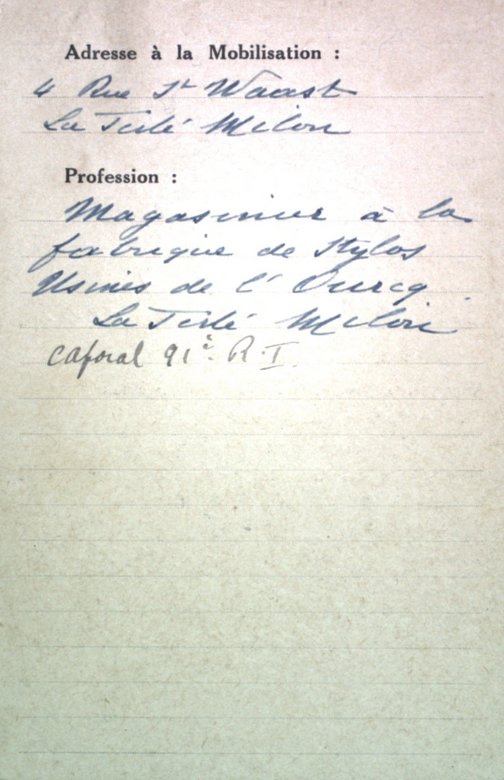 Adresse à la Mobilisation :
4 Rue St Waast
La Ferté Milon
Profession :
Magasinier à la
fabrique de Stylos
Usines de l'Ourcq
La Ferté Milon
Caporal 91e R.I.